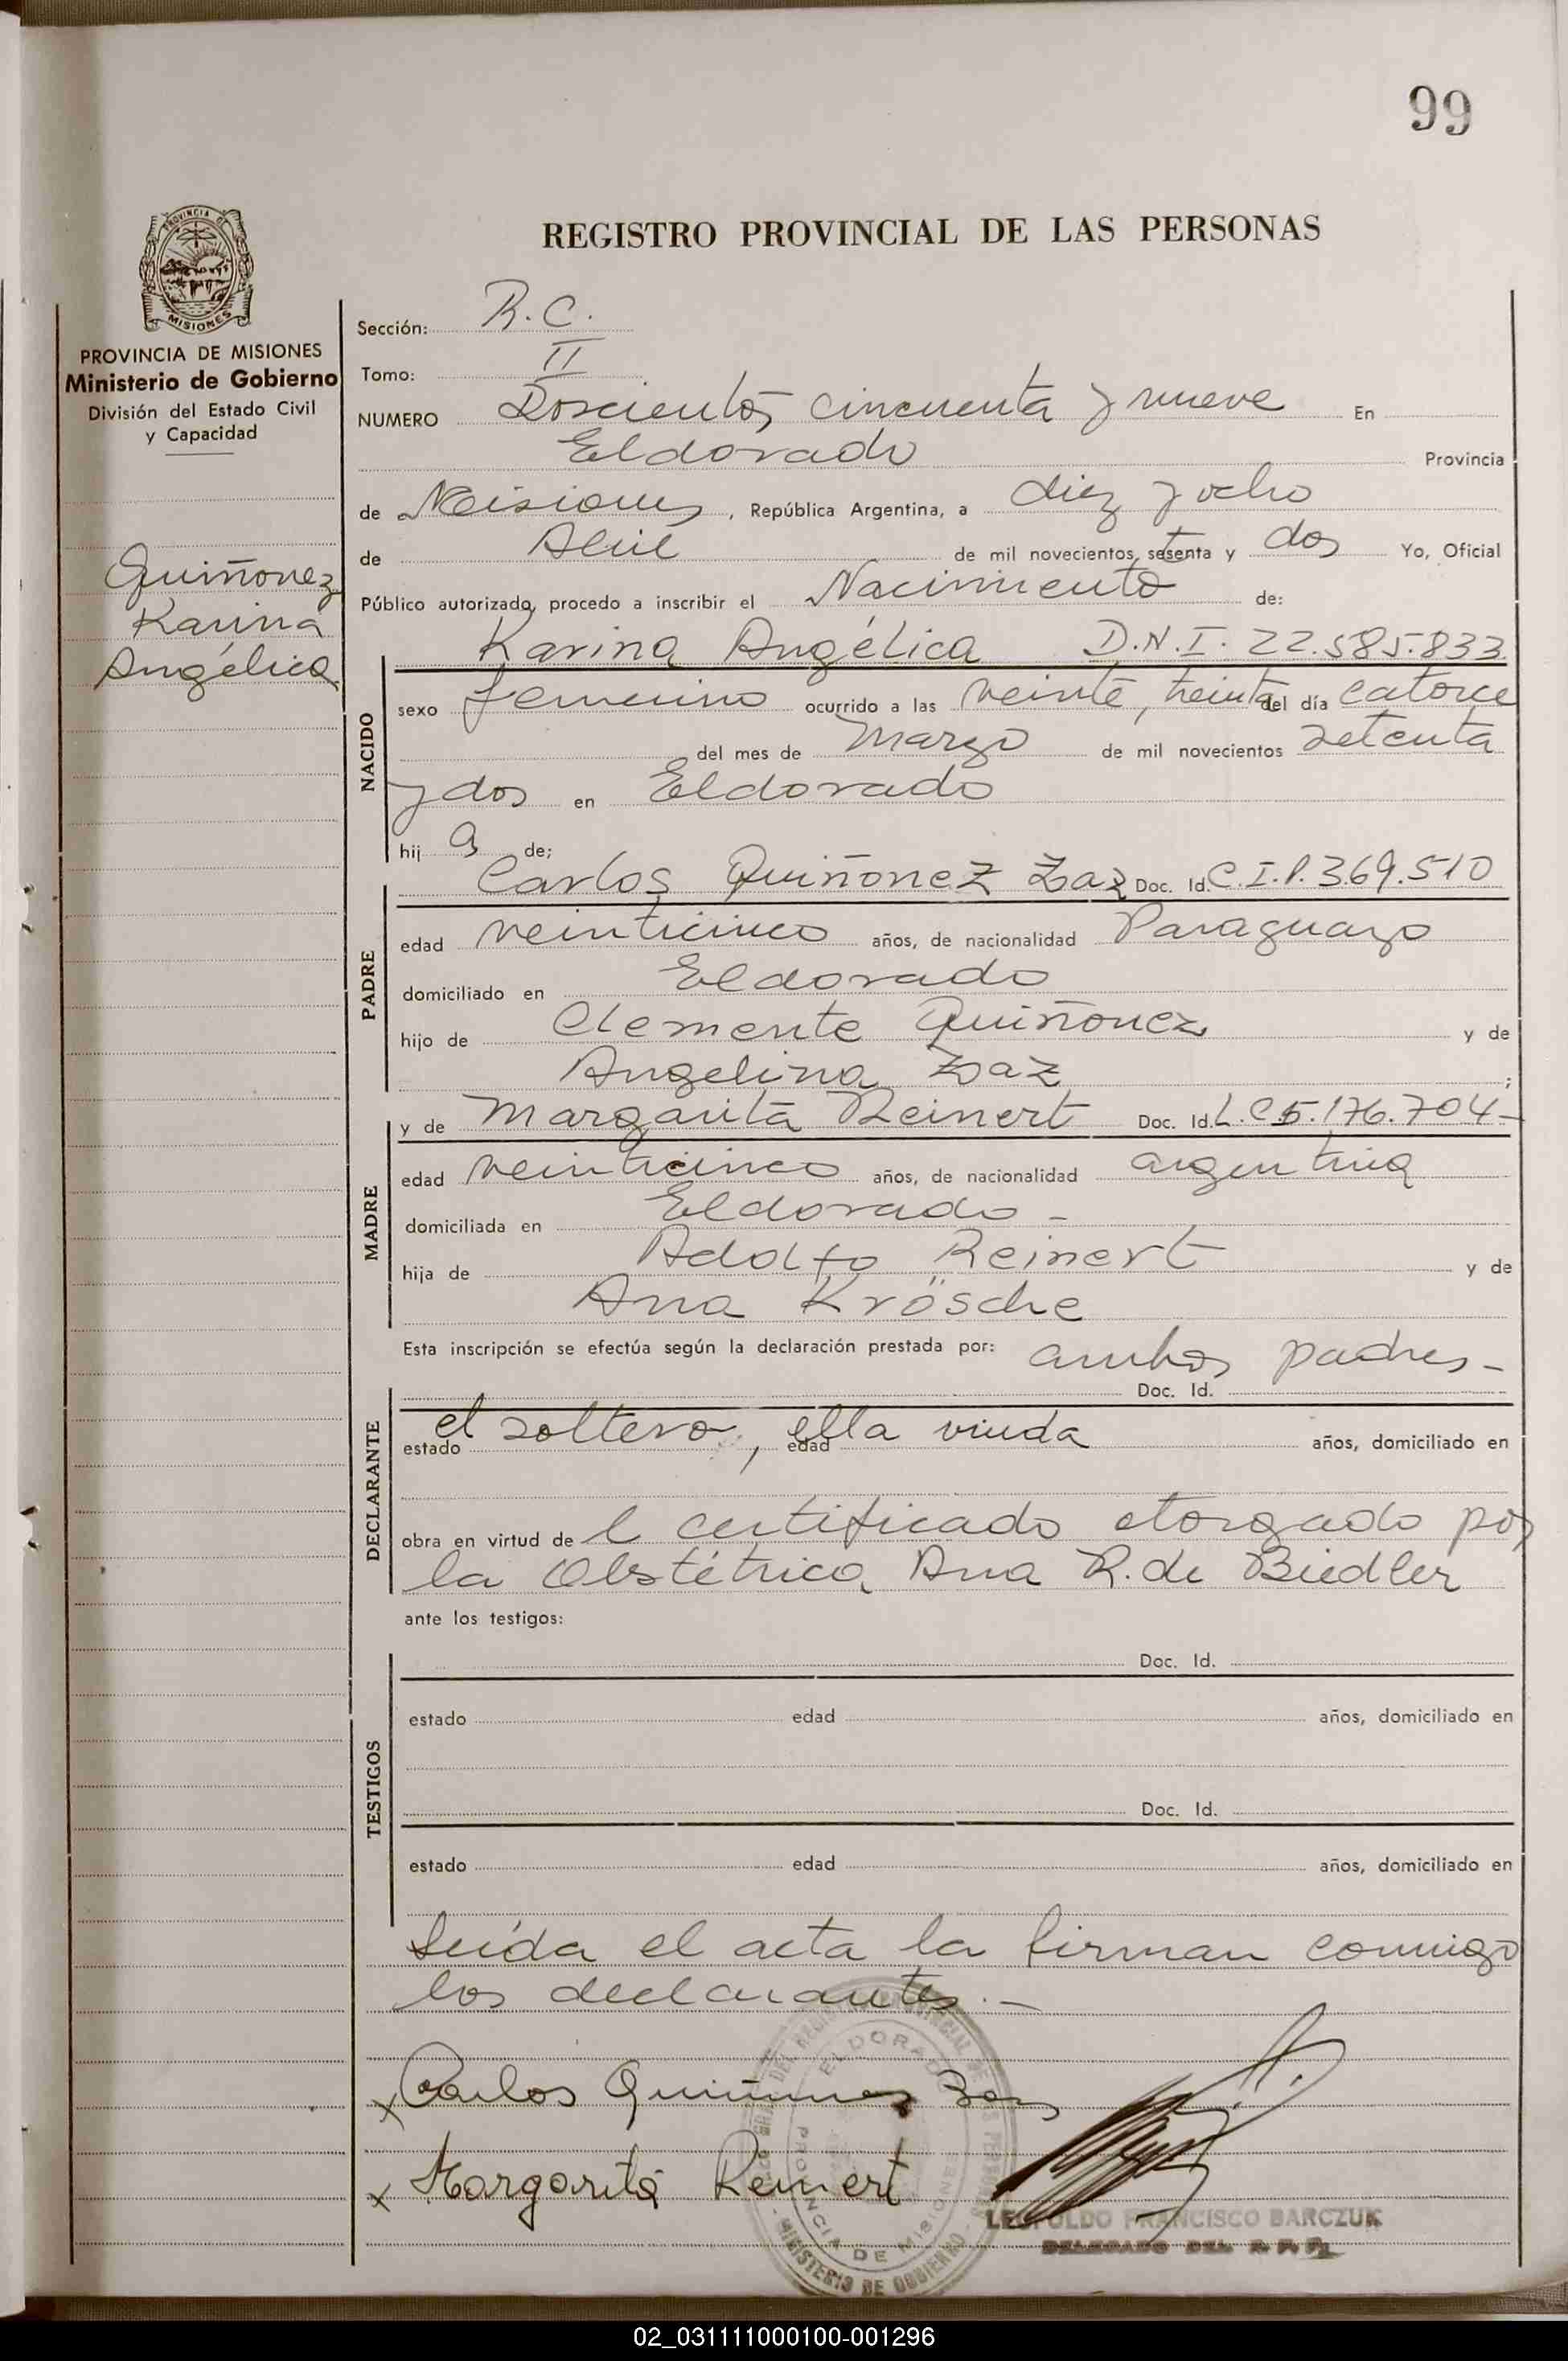 99
REGISTRO PROVINCIAL DE LAS PERSONAS
PROVINCIA DE MISIONES
PROVINCIA DE MISIONES
Ministerio de Gobierno
División del Estado Civil
y Capacidad
Quiñonez
Karina
Angélica
Sección: R.C.
Tomo: II
NUMERO Doscientos cincuenta y nueve En
Eldorado Provincia
de Misiones, República Argentina, a diez y ocho
de Abril de mil novecientos setenta y dos Yo, Oficial
Público autorizado, procedo a inscribir el Nacimiento de:
Karina Angélica D.N.I. 22.585.833
NACIDO
sexo femenino ocurrido a las veinte, treinta del día catorce
del mes de Marzo de mil novecientos setenta
y dos en Eldorado
hij a de;
Carlos Quiñonez Zaz Doc. Id. C.I.P. 369.510
PADRE
edad veinticinco años, de nacionalidad Paraguayo
domiciliado en Eldorado
hijo de Clemente Quiñonez y de
Angelina Zaz ;
y de Margarita Reinert Doc. Id. L.C 5.176.704-
MADRE
edad veinticinco años, de nacionalidad argentina
domiciliada en Eldorado -
hija de Adolfo Reinert y de
Ana Krösche
Esta inscripción se efectúa según la declaración prestada por: ambos padres-
Doc. Id.
DECLARANTE
estado el soltero, edad ella viuda años, domiciliado en
obra en virtud de l certificado otorgado por
la Obstétrica Ana R. de Biedler
ante los testigos:
Doc. Id.
TESTIGOS
estado edad años, domiciliado en
Doc. Id.
estado edad años, domiciliado en
Leída el acta la firman conmigo
los declarantes.-
x Carlos Quiñonez Zaz
x Margarita Reinert
ELDORADO
PROVINCIA DE MISIONES
MINISTERIO DE GOBIERNO
LEOPOLDO FRANCISCO BARCZUK
DELEGADO DEL R. P. P.
02_031111000100-001296